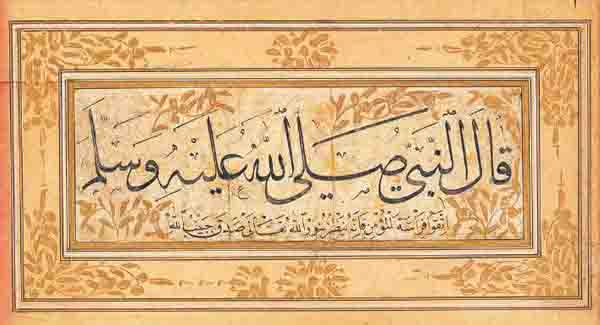 قال النبي صلى الله عليه وسلم
اتقوا فراسة المؤمن فإنه ينظر بنور الله تعالى صدق حبيب الله